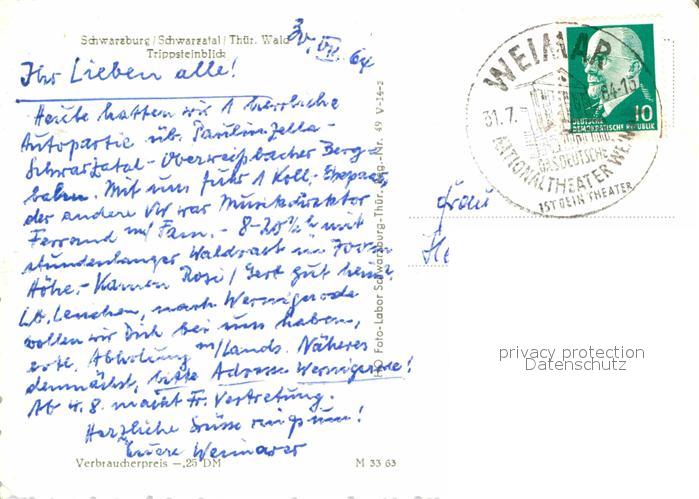 Schwarzburg/Schwarzatal/Thür. Wald
Trippsteinblick
30. VII. 64
Ihr Lieben alle!
Heute hatten wir 1 herrliche
Autopartie üb. Paulinzella-
Schwarzatal-Oberweißbacher Berg-
bahn. Mit uns fuhr 1 Koll.-Ehepaar,
der andere VW war Musikdirektor
Ferrand m/ Fam. - 8-20½ʰ mit
stundenlanger Waldrast in 700 m
Höhe. - Kamen Rosi/Gert gut heim?
Lb. Lenchen, nach Wernigerode
wollen wir Dich bei uns haben,
evtl. Abholung m/Lands. Näheres
demnächst, bitte Adresse Wernigerode!
Ab 4.8. macht Fr. Vertretung.
Herzliche Grüsse ringsum!
Eure Weimarer
Verbraucherpreis -,25 DM
M 33 63
HO Foto-Labor Schwarzburg-Thür. Reg.-Nr. 49 V-14-2
WEIMAR
31.7. 64-13
DAS DEUTSCHE
NATIONALTHEATER WEIMAR
IST DEIN THEATER
10
DEUTSCHE
DEMOKRATISCHE REPUBLIK
Frau
He
privacy protection
Datenschutz